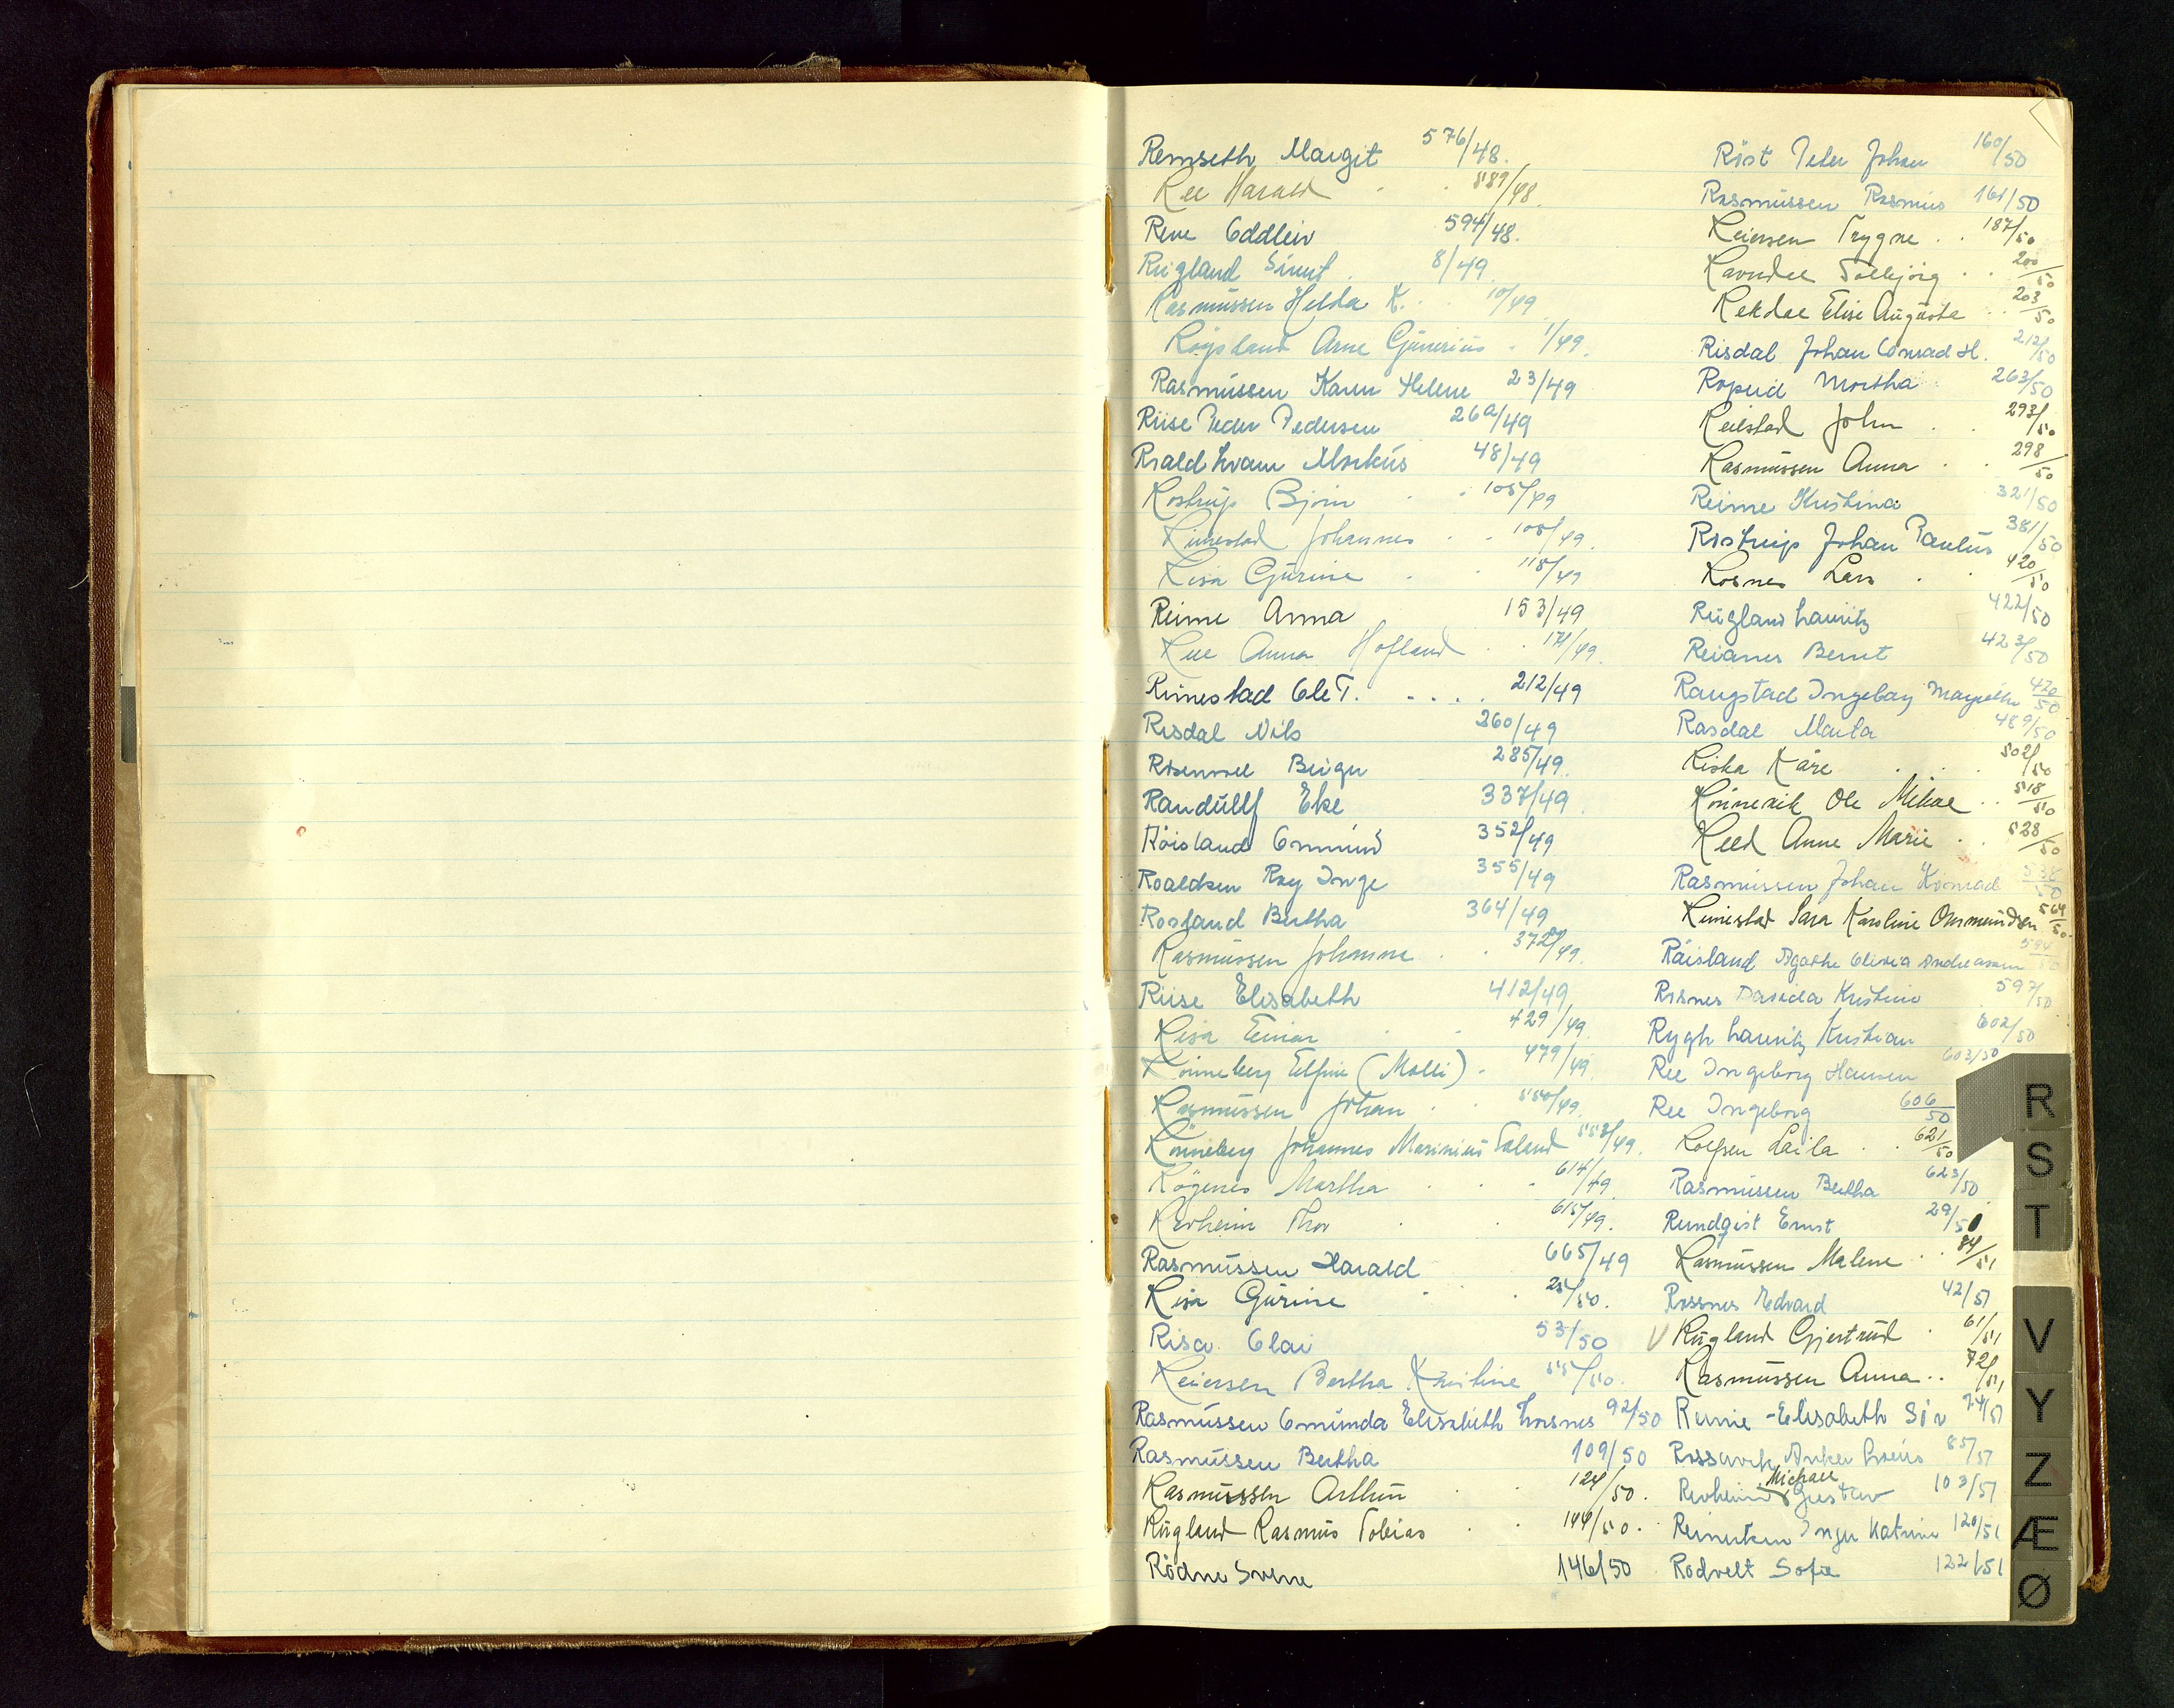 Remseth Margit 576/48.
Ree Harald . . 589/48.
Rene Oddleiv 594/48.
Rugland Sirind . 8/49.
Rasmussen Helda K. . 10/49
Röysland Arne Gunerius . 1/49.
Rasmussen Karen Helene 23/49
Riise Peder Pedersen 26a/49
Roaldkvam Markus 48/49
Rostrup Bjørn . . 105/49
Rimestad Johannes . . 108/49.
Risa Gurine . . 118/49
Reime Anna 153/49
Ree Anna Hofland . . 171/49.
Rimestad Ole T. . . . . 212/49
Risdal Nils 260/49
Rosenvoll Birger 285/49.
Randulff Eke 337/49
Röisland Ommund 352/49
Roaldsen Roy Inge 355/49
Rosland Bertha 364/49
Rasmussen Johanne . . 372/49.
Riise Elisabeth 412/49
Risa Einar . . 429/49.
Rönneberg Elfine (Molli) . 479/49.
Rasmussen Johan . . 550/49.
Rönneberg Johannes Marinius Saland 553/49.
Rögenes Martha . . . 614/49
Revheim Thor . . 615/49.
Rasmussen Harald 665/49
Risa Gurine . . 25/50.
Risa Olai 53/50
Reiersen Bertha Kristine 55/50.
Rasmussen Omunda Elisabeth Torsnes 92/50
Rasmussen Bertha 109/50
Rasmussen Arthur . . 124/50.
Rugland Rasmus Tobias . . 144/50.
Rödne Svene 146/50
Röst Peder Johan 160/50
Rasmussen Rasmus 161/50
Reiersen Trygve . . 187/50
Ravndal Tollbjörg . . 200/50
Rekdal Elise Augusta . . 203/50
Risdal Johan Conrad H. 212/50
Ropeid Martha 263/50
Reilstad John . . 293/50
Rasmussen Anna . . 298/50
Reime Kristina 321/50
Rostrup Johan Paulus 381/50
Rosnes Lars . . 420/50
Rugland Lauritz 422/50
Reianes Bernt 423/50
Raugstad Ingeborg Margrethe 470/50
Rasdal Marta 489/50
Riska Kåre . . . 502/50
Rönnevik Ole Mikal . . 518/50
Reed Anne Marie . . 528/50
Rasmussen Johan Konrad 538/50
Rimestad Sara Karoline Ommundsen 564/50.
Röisland Agathe Olivia Andreassen 594/50
Risnes Davida Kristine 597/50
Rygh Lauritz Kristian 602/50
Ree Ingeborg Hansen 603/50
Ree Ingeborg 606/50
Rolfsen Laila . . 621/50
Rasmussen Bertha 623/50
Rundqist Ernst 29/51
Rasmussen Malene . . 84/51
Rossnes Edvard 42/51
V Rugland Gjertrud . 61/51
Rasmussen Anna . . 72/51
Reime -Elisabeth Siv 74/51
Rossavik Anker Lovius 85/51
Michael
Revheim Gustav 103/51
Reinertsen Inger Katrine 120/51
Rodvelt Sofie 122/51
R
S
T
V
Y
Z
Æ
Ø